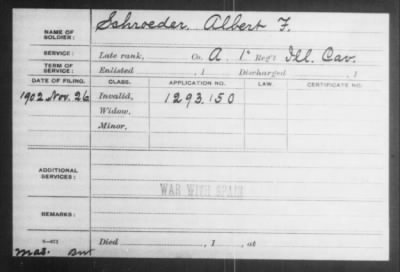 NAME OF SOLDIER: Schroeder, Albert F.
SERVICE: Late rank, Co. A, 1" Reg't Ill. Cav.
TERM OF SERVICE: Enlisted , 1 Discharged , 1
DATE OF FILING. CLASS. APPLICATION NO. LAW. CERTIFICATE NO.
1902 Nov. 26 Invalid, 1293.150
Widow,
Minor,
ADDITIONAL SERVICES:
WAR WITH SPAIN
REMARKS:
Died , 1 , at